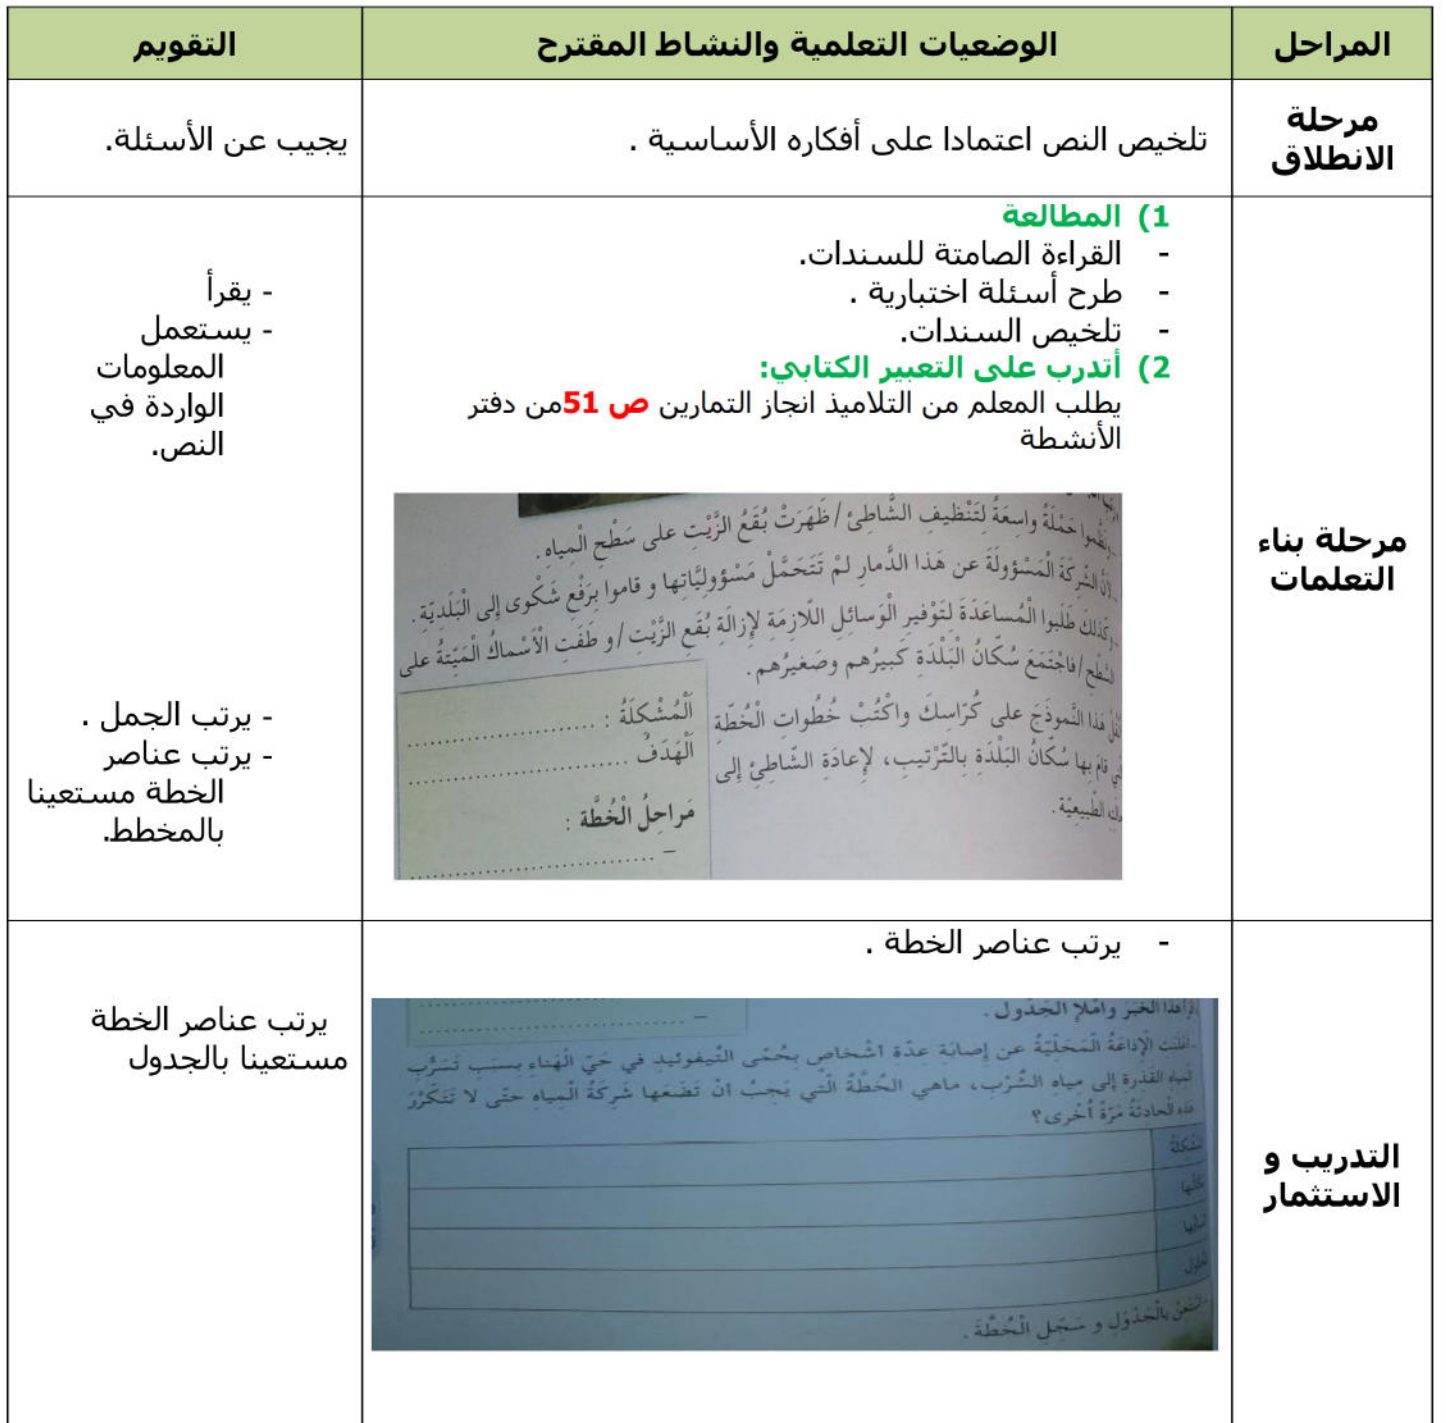 المراحل
الوضعيات التعلمية والنشاط المقترح
التقويم
مرحلة
الانطلاق
تلخيص النص اعتمادا على أفكاره الأساسية .
يجيب عن الأسئلة.
مرحلة بناء
التعلمات
1) المطالعة
- القراءة الصامتة للسندات.
- طرح أسئلة اختبارية .
- تلخيص السندات.
2) أتدرب على التعبير الكتابي:
يطلب المعلم من التلاميذ انجاز التمارين ص 51من دفتر
الأنشطة
حَمْلَةً واسِعَةً لِتَنْظيفِ الشَّاطِئْ / ظَهَرَتْ بُقَعُ الزَّيْتِ على سَطْحِ الْمِياهِ .
الشَّرِكَةَ الْمَسْؤولَةَ عن هَذا الدَّمارِ لمْ تَتَحَمَّلْ مَسْؤولِيَّاتِها و قاموا بِرَفْعِ شَكْوى إلى الْبَلَديّة .
وكَذلكَ طَلَبوا الْمُساعَدَةَ لِتَوْفيرِ الْوَسائِلِ اللّازِمَةِ لإِزالَةِ بُقَعِ الزَّيْتِ / و طَفَتِ الْأَسْماكُ الْمَيّتةُ على
السَّطْحِ / فاجْتَمَعَ سُكّانُ الْبَلْدَة كَبيرُهم وصَغيرُهم .
هَذا النَّموذَجَ على كُرّاسِكَ واكْتُبْ خُطُواتِ الْخُطّةِ
قامَ بِها سُكّانُ البَلْدَةِ بِالتَّرْتيبِ، لإِعادَةِ الشّاطِئْ إلى
الطَّبيعِيّة .
اَلْمُشْكِلَةُ : ........................
اَلْهَدَفُ ............................
مَراحِلُ الْخُطَّة :
– ............................
- يقرأ
- يستعمل
المعلومات
الواردة في
النص.
- يرتب الجمل .
- يرتب عناصر
الخطة مستعينا
بالمخطط.
التدريب و
الاستثمار
- يرتب عناصر الخطة .
هذا الخَبَرَ وامْلإِ الجَدْول .
الْإذاعَةُ الْمَحَلّيّةُ عن إصابَةِ عدّةِ أشْخاصٍ بِحُمّى التّيفوئيد في حَيّ الْهَناءِ بِسَبَبِ تَسَرُّبِ
القَذِرة إلى مِياهِ الشُّرْبِ، ماهي الخُطّةُ الّتي يَجِبُ أنْ تَضَعَها شَرِكَةُ الْمِياهِ حتّى لا تَتَكَرّرَ
هَذه الْحادِثَةُ مَرّةً أُخْرى؟
بالْجَدْوَلِ و سَجّلِ الْخُطَّةَ .
يرتب عناصر الخطة
مستعينا بالجدول